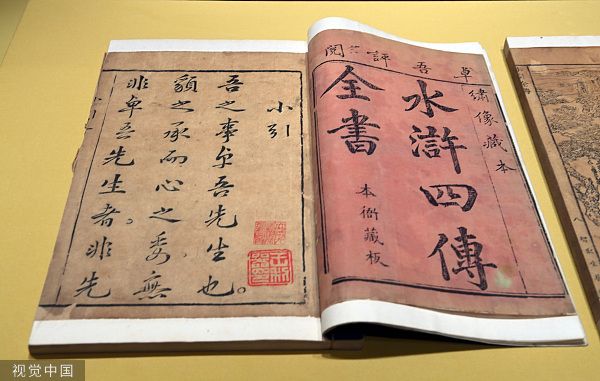 卓吾評閱
繡像藏本
水滸四傳
全書
本衙藏板
小引
吾之事卓吾先生也。
䫉之承而心之委無
非卓吾先生者非先
视觉中国